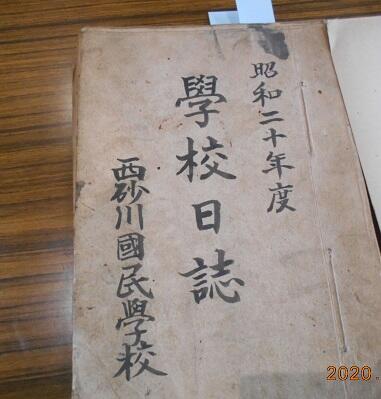 昭和二十年度
學校日誌
西砂川國民學校
2020.